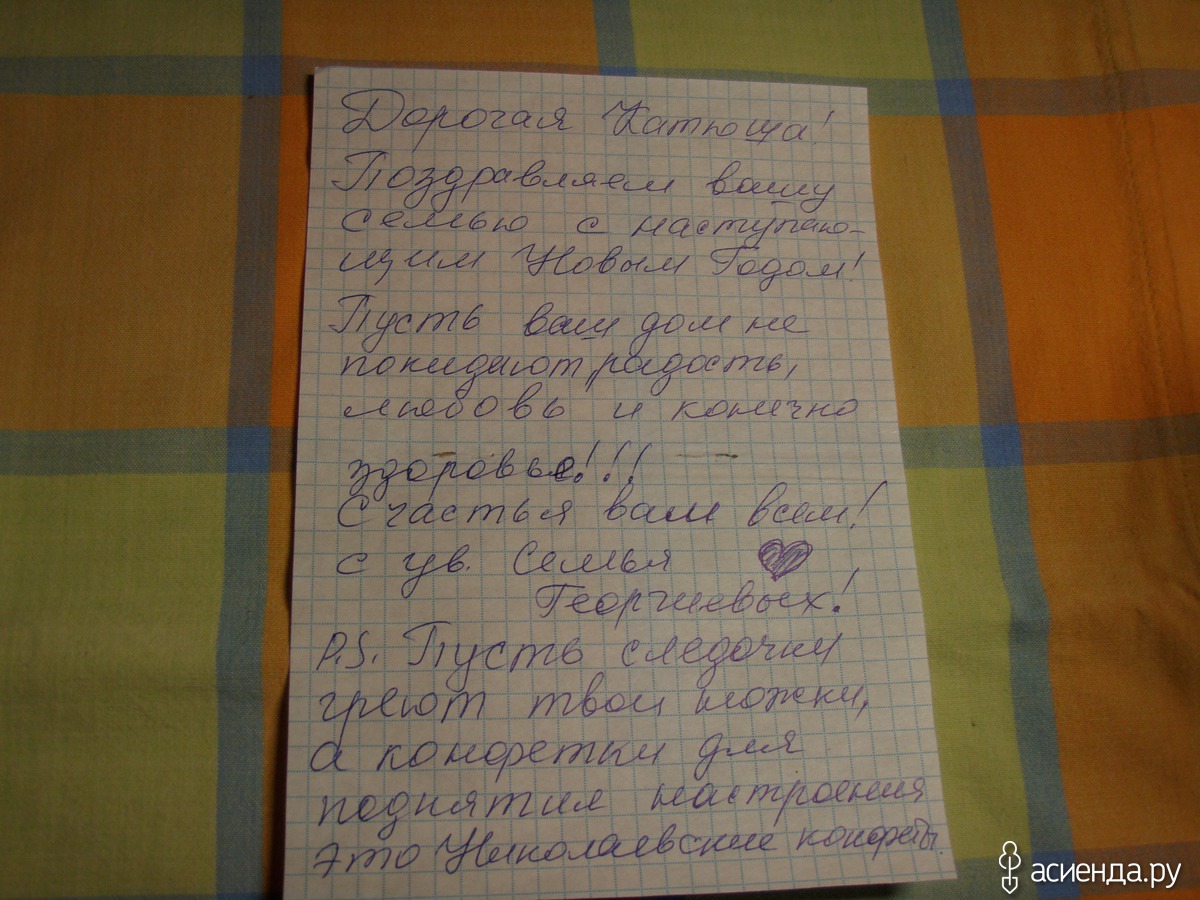 Дорогая Катюша!
Поздравляем вашу
семью с наступаю-
щим Новым Годом!
Пусть ваш дом не
покидают радость,
любовь и конечно
здоровье!!!
Счастья вам всем!
с ув. Семья
Георгиевых!
P.S. Пусть следочки
греют твои ножки,
а конфетки для
поднятия настроения
это Николаевские конфеты.
асиенда.ру